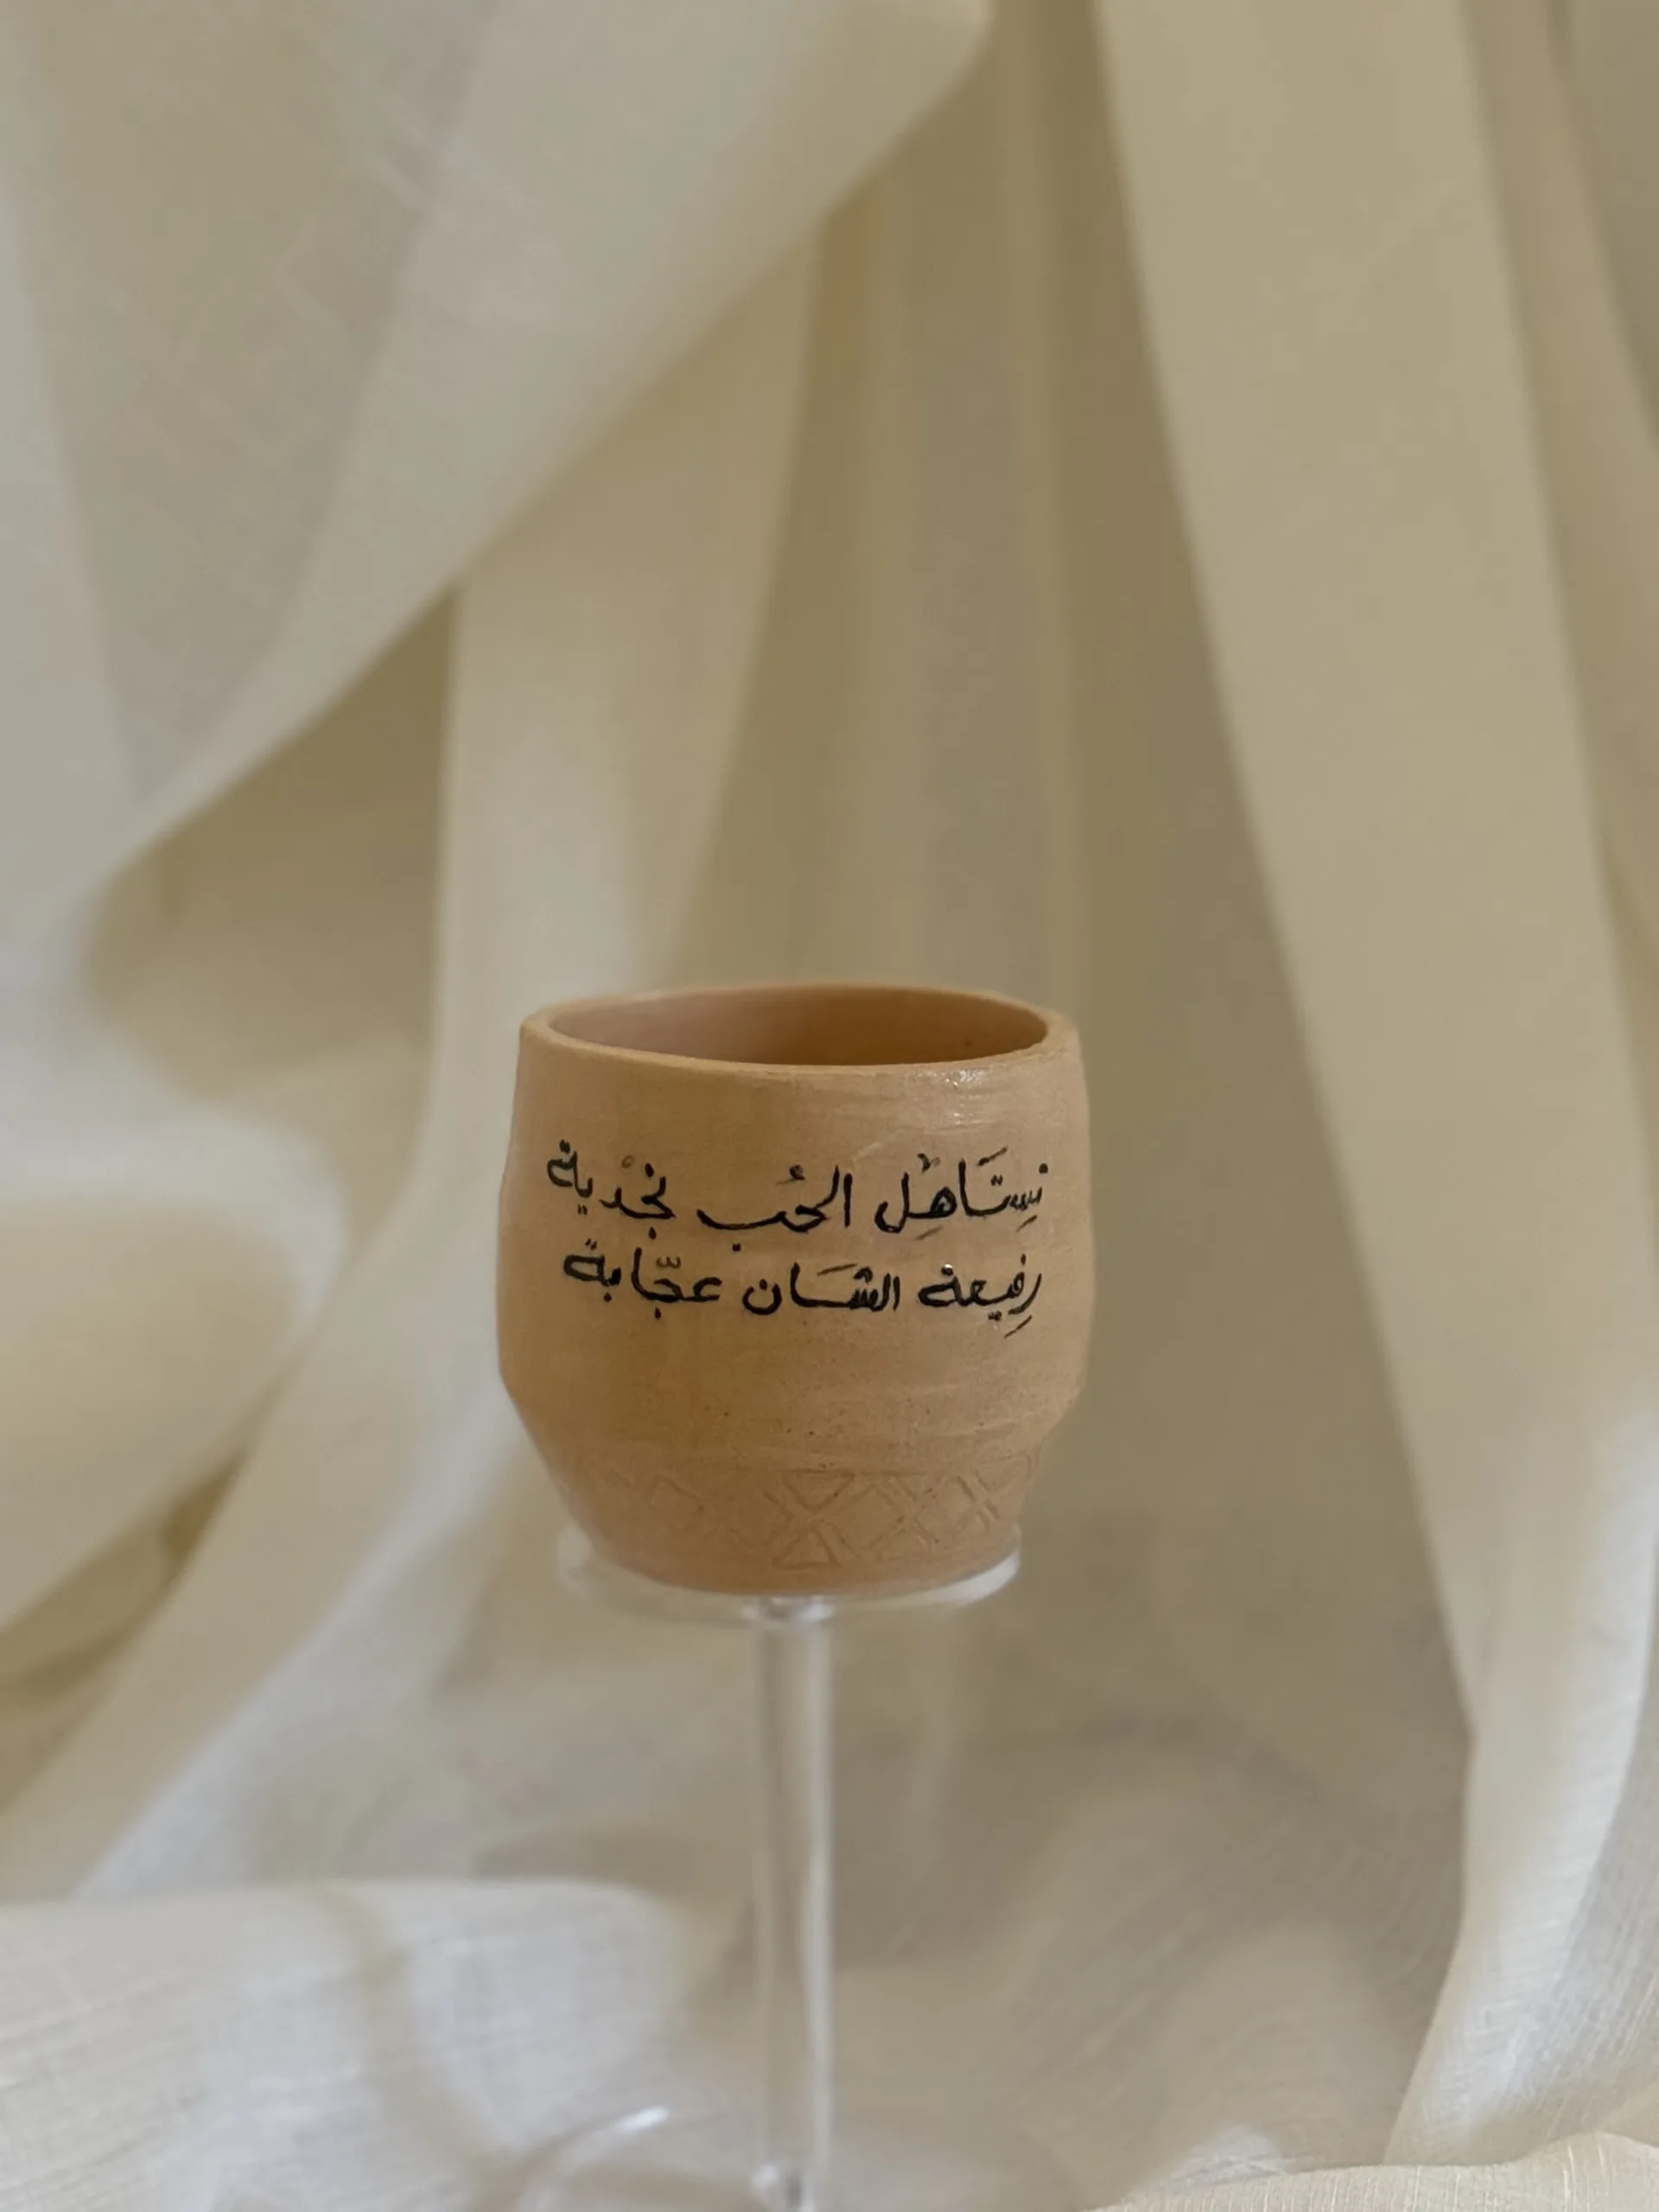 نِستَاهِل الحُب نجْدية
رِفيعة الشَان عجّابة